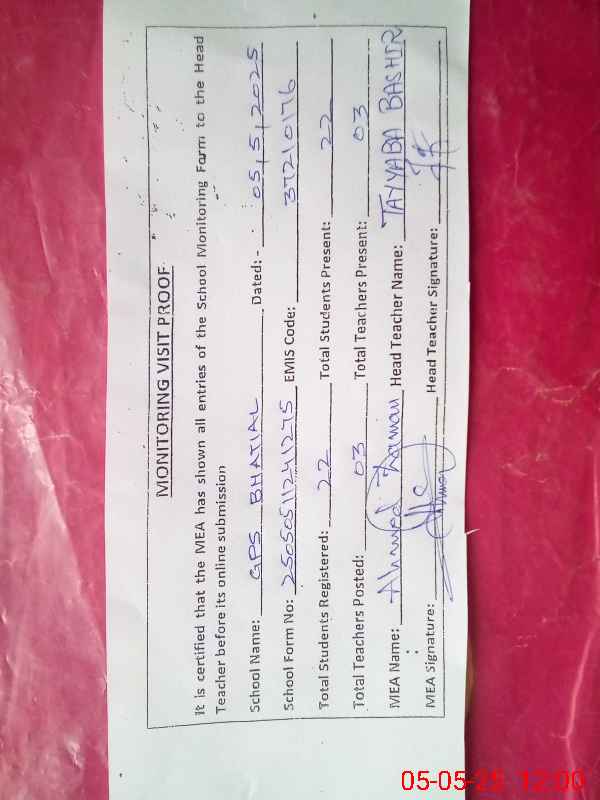 MONITORING VISIT PROOF
It is certified that the MEA has shown all entries of the School Monitoring Form to the Head
Teacher before its online submission
School Name: GPS BHATIAL Dated: - 05, 5, 2025
School Form No: 25050511241275 EMIS Code: 37210176
Total Students Registered: 22 Total Students Present: 22
Total Teachers Posted: 03 Total Teachers Present: 03
MEA Name: Ahmed Zaman Head Teacher Name: TAYYABA BASHIR
MEA Signature: Head Teacher Signature:
05-05-25 12:00